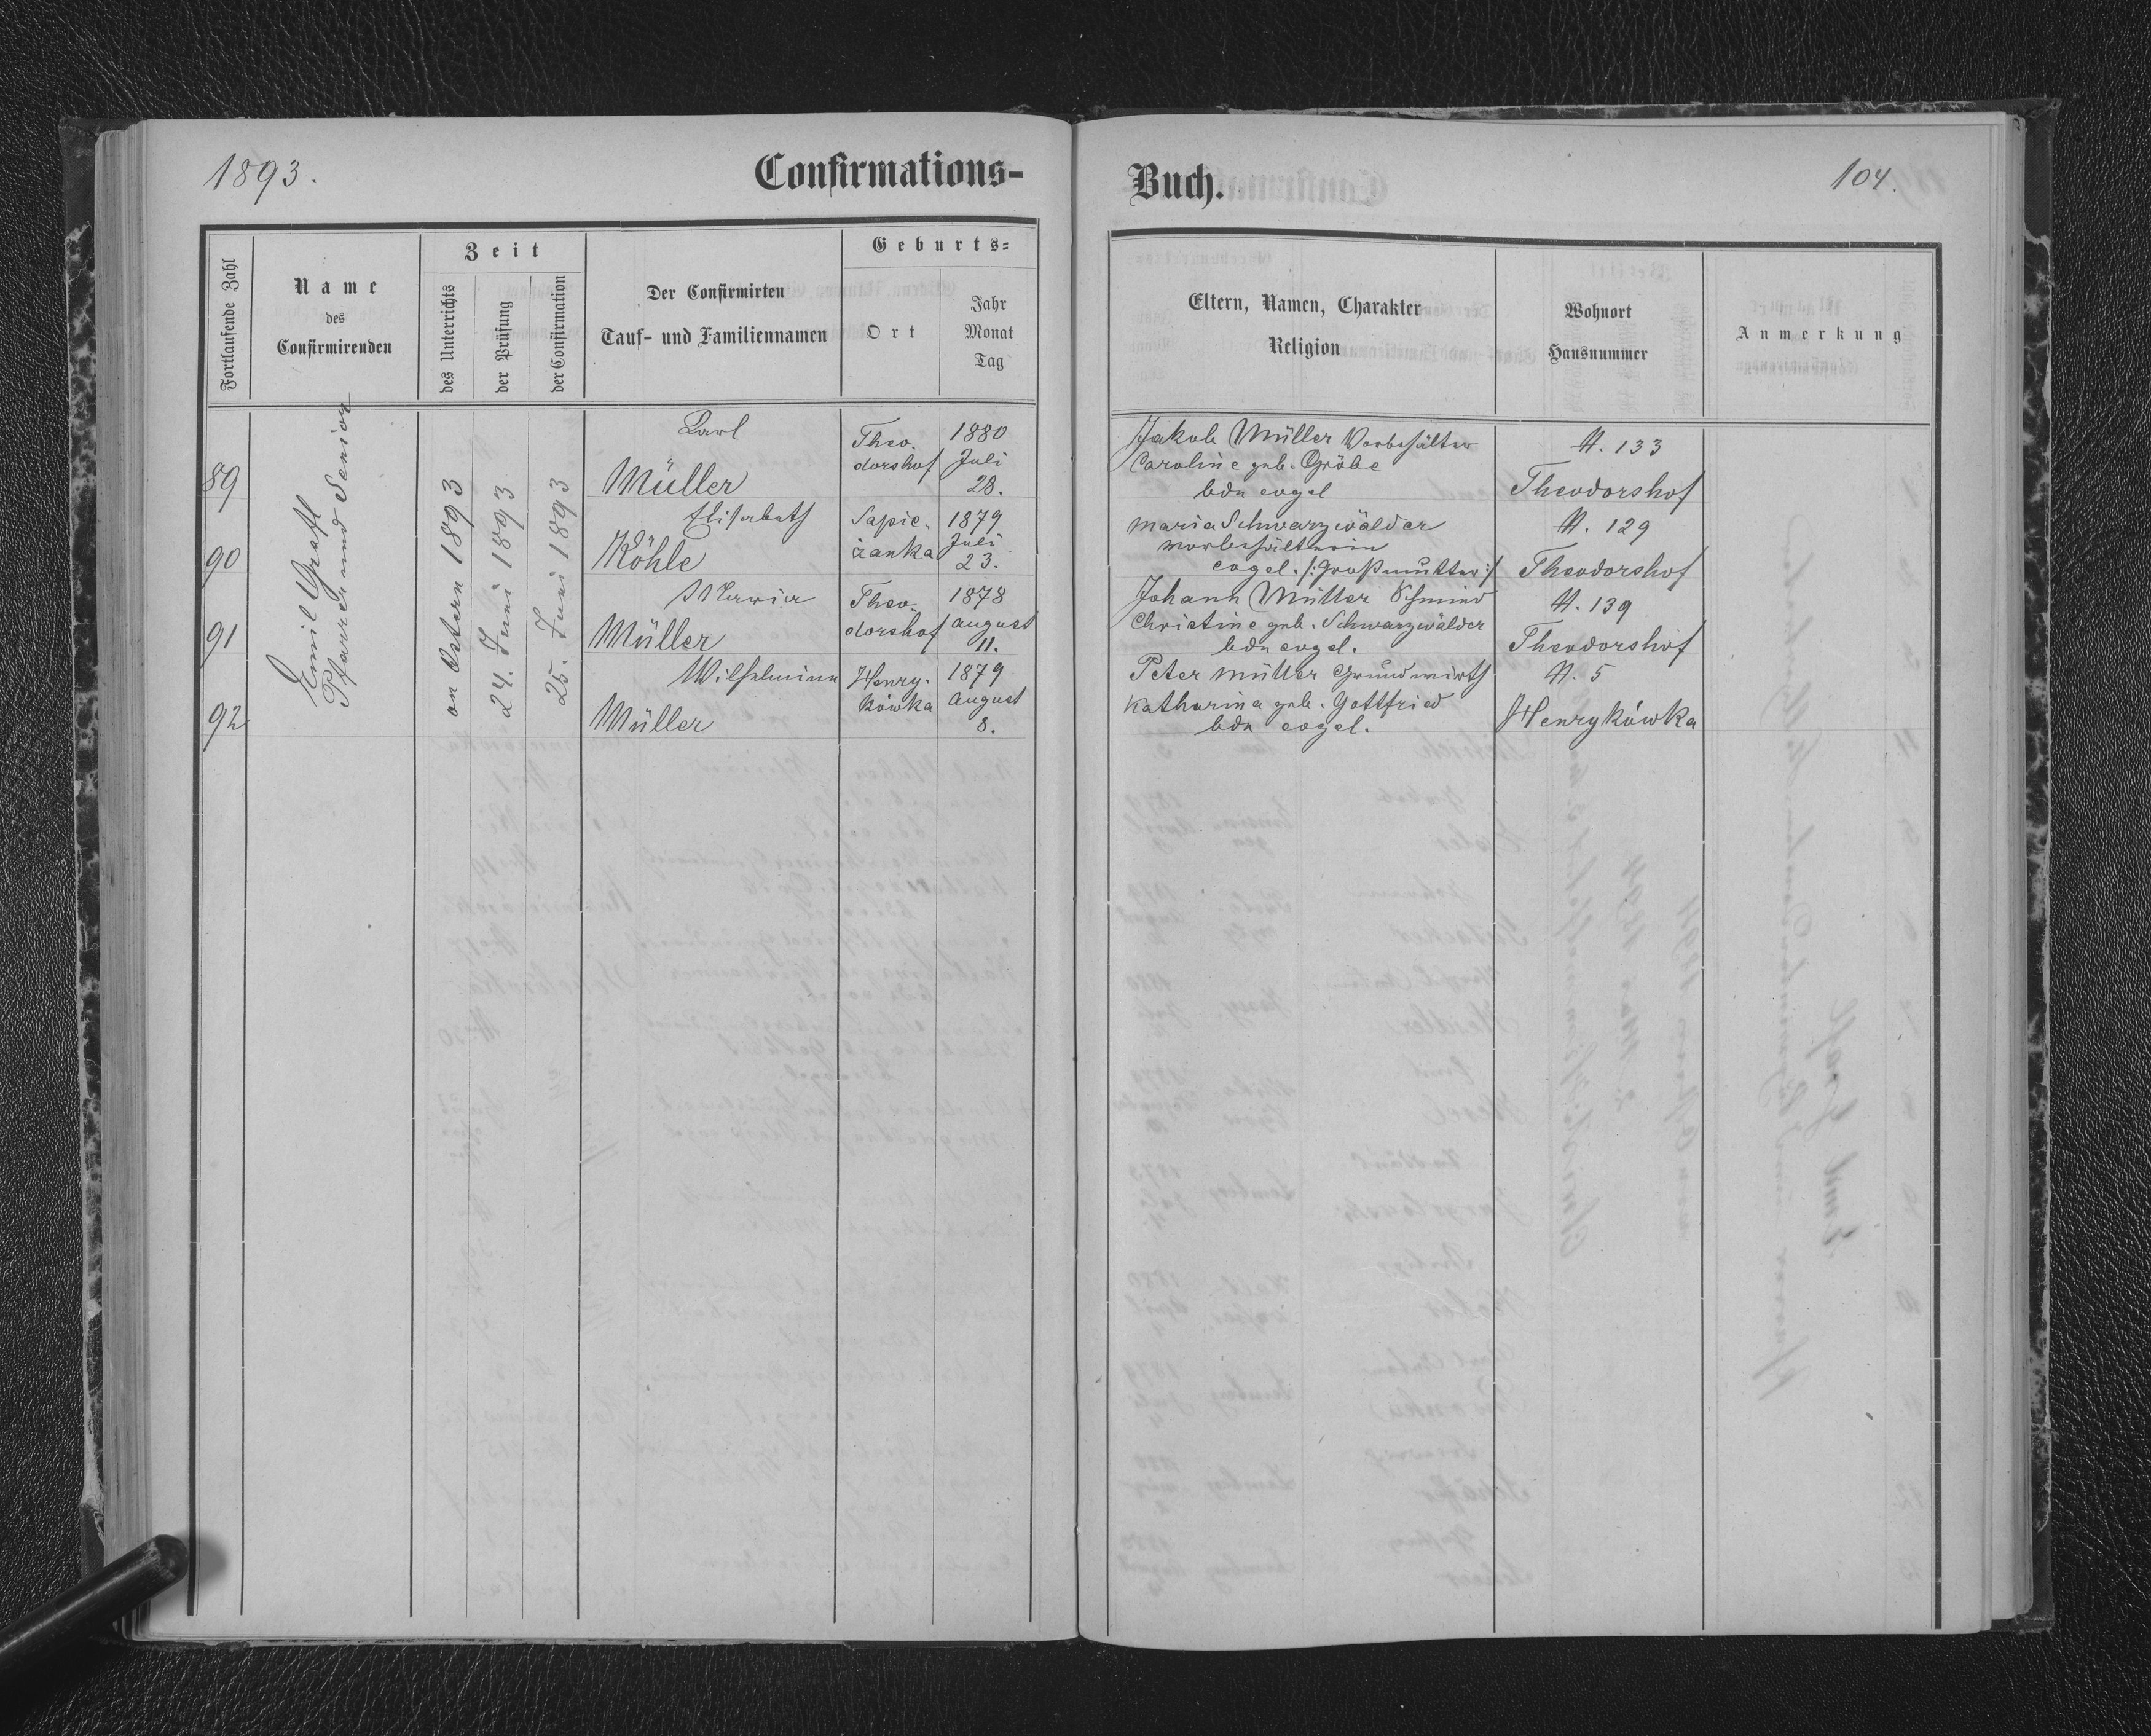 1893.
Confirmations-
Fortlaufende Zahl
Name
des
Confirmirenden
Zeit
des Unterrichts
der Prüfung
der Confirmation
Der Confirmirten
Tauf- und Familiennamen
Geburts-
Ort
Jahr
Monat
Tag
Emil Grafl
Pfarrer und Senior
on Ostern 1893
24. Juni 1893
25. Juni 1893
89
Carl
Müller
Theo-
dorshof
1880
Juli
28.
90
Elisabeth
Köhle
Sapie-
żanka
1879
Juli
23.
91
Maria
Müller
Theo-
dorshof
1878
August
11.
92
Wilhelmine
Müller
Henry-
kówka
1879
August
8.
Buch.
104.
Eltern, Namen, Charakter
Religion
Wohnort
Hausnummer
Anmerkung
Jakob Müller Vorbehälter
Caroline geb. Gröbe
bde evgel
N. 133
Theodorshof
Maria Schwarzwälder
Vorbehälterin
evgel. /:Großmutter:/
N. 129
Theodorshof
Johann Müller Schmied
Christine geb. Schwarzwälder
bde evgel.
N. 139
Theodorshof
Peter Müller Grundwirth
Katharina geb. Gottfried
bde evgel.
N. 5
Henrykówka